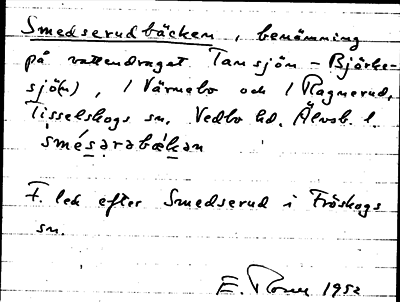 Smedserudbäcken, benämning
på vattendraget Tansjön – Björke-
sjö(n), i Värnebo och i Ragnerud,
Tisselskogs sn. Vedbo hd. Älvsb. l.
smésarabækan
F. led efter Smedserud i Fröskogs
sn.
E. 1952